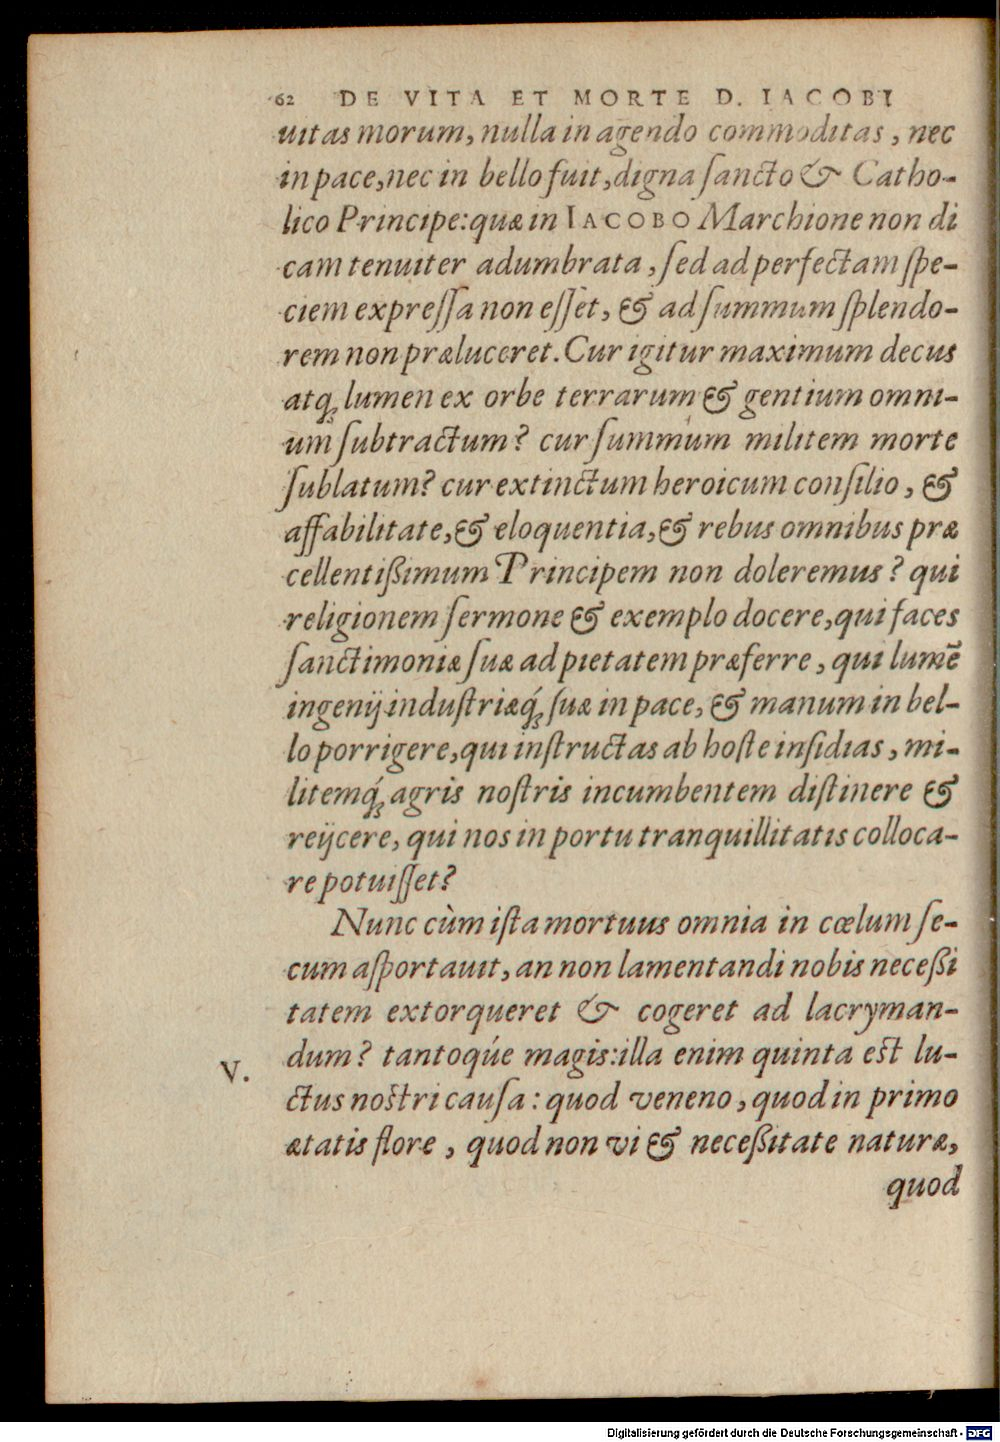 62 DE VITA ET MORTE D. IACOBI
uitas morum, nulla in agendo commoditas, nec
in pace, nec in bello fuit, digna ſancto & Catho-
lico Principe: quæ in IACOBO Marchione non di
cam tenuiter adumbrata, ſed ad perfectam ſpe-
ciem expreſſa non eſſet, & ad ſummum ſplendo-
rem non præluceret. Cur igitur maximum decus
atq́; lumen ex orbe terrarum & gentium omni-
um ſubtractum? cur ſummum militem morte
ſublatum? cur extinctum heroicum conſilio, &
affabilitate, & eloquentia, & rebus omnibus præ
cellentißimum Principem non doleremus? qui
religionem ſermone & exemplo docere, qui faces
ſanctimoniæ ſuæ ad pietatem præferre, qui lumē
ingenij induſtriæq́; ſuæ in pace, & manum in bel-
lo porrigere, qui inſtructas ab hoſte inſidias, mi-
litemq́; agris noſtris incumbentem diſtinere &
reijcere, qui nos in portu tranquillitatis colloca-
re potuiſſet?
Nunc cùm iſta mortuus omnia in cœlum ſe-
cum aſportauit, an non lamentandi nobis neceßi
tatem extorqueret & cogeret ad lacryman-
dum? tantoqúe magis: illa enim quinta est lu-
V.
ctus nostri cauſa: quod veneno, quod in primo
ætatis flore, quod non vi & neceßitate naturæ,
quod
Digitalisierung gefördert durch die Deutsche Forschungsgemeinschaft - DFG